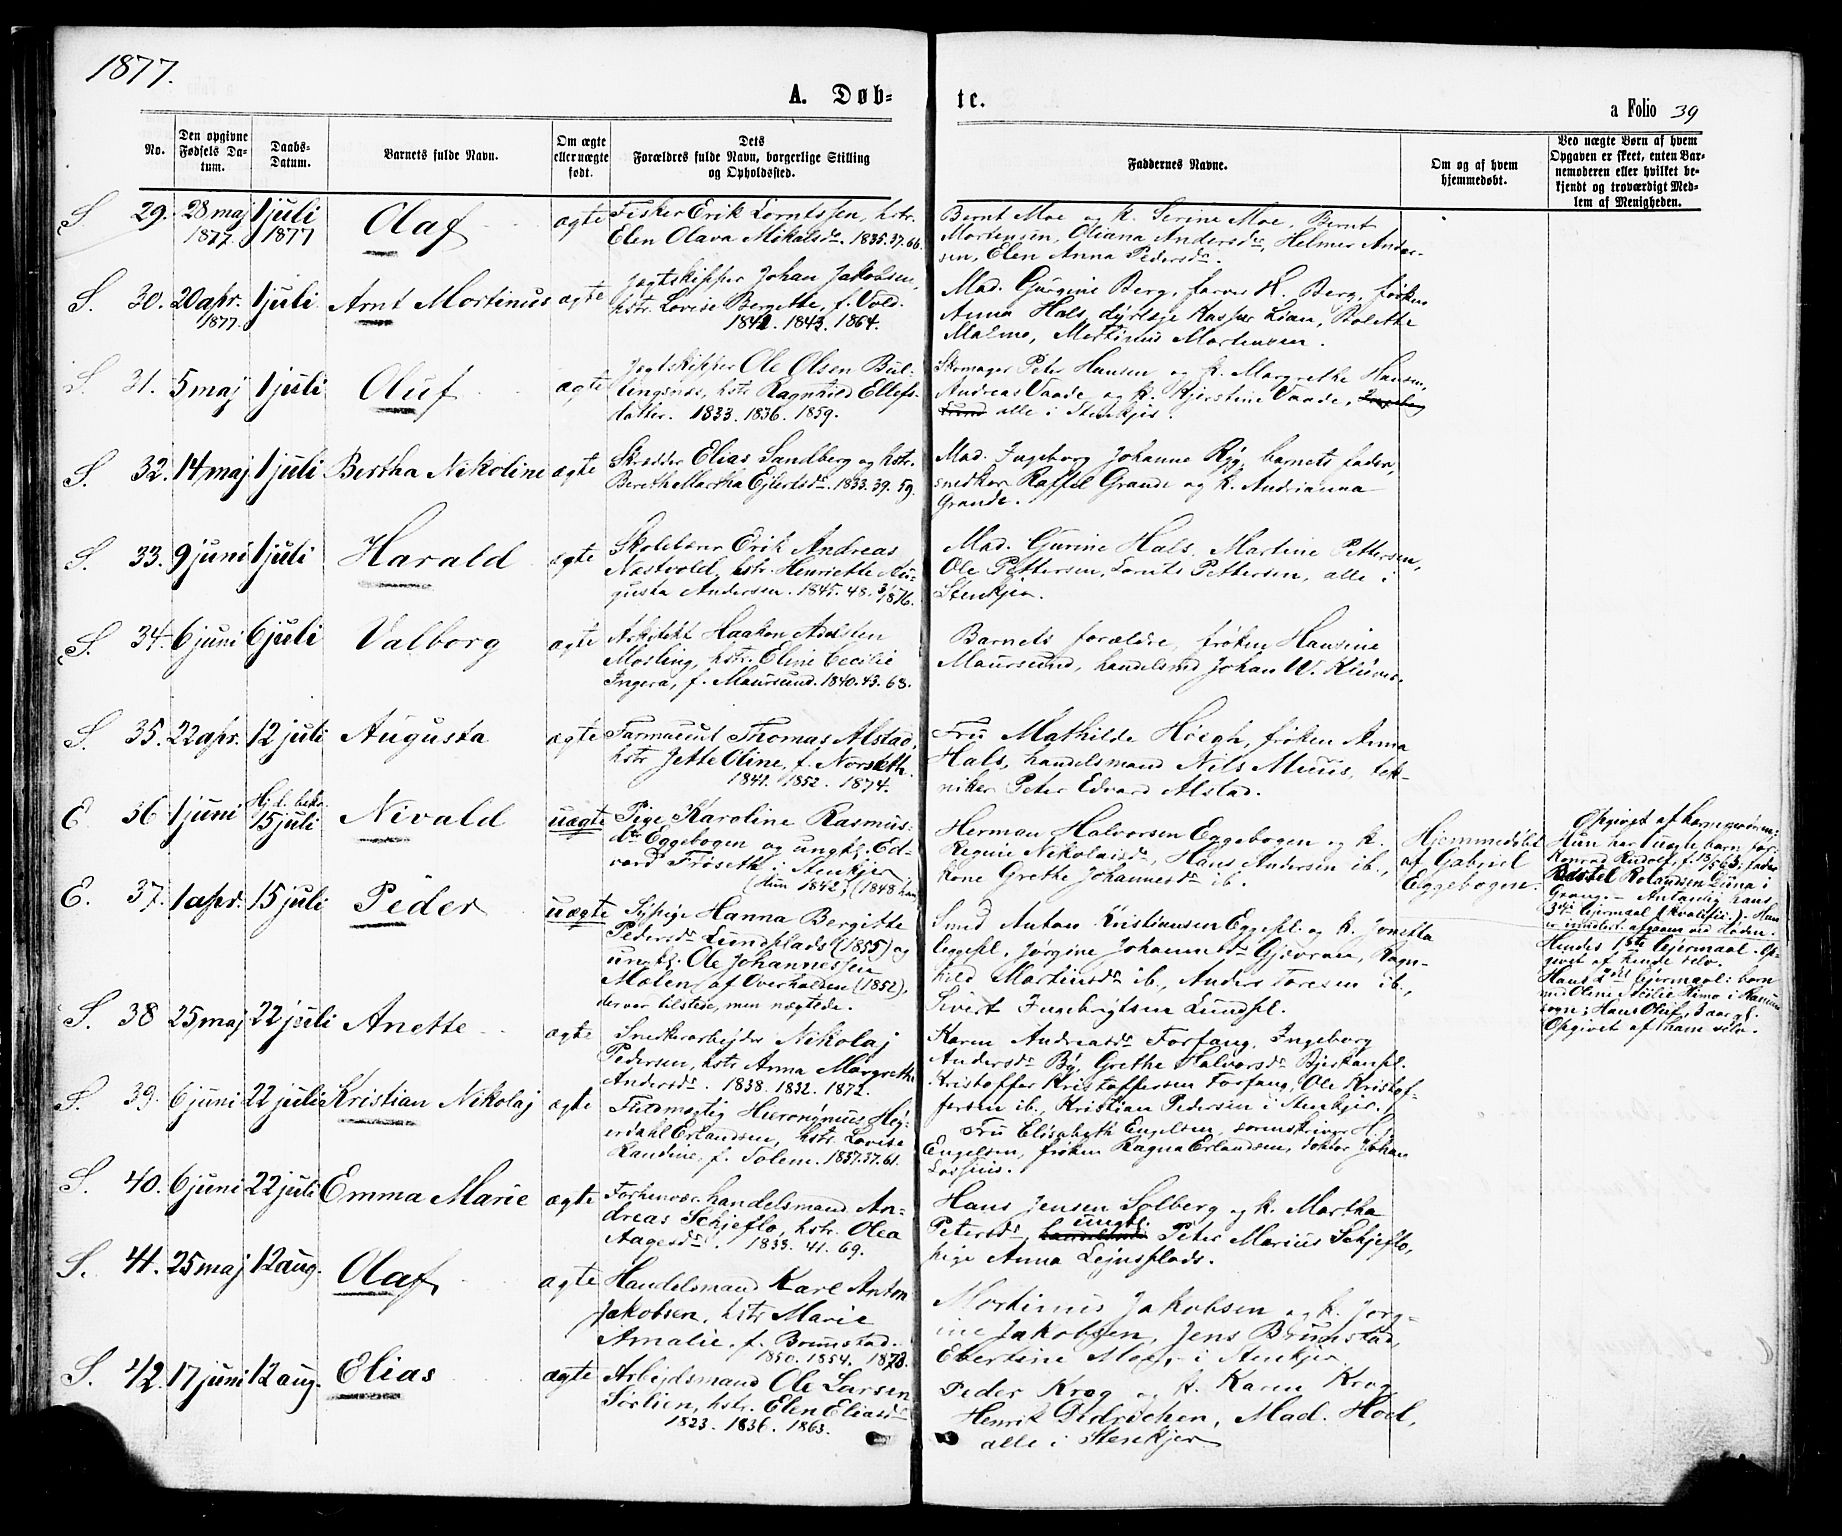 1877.
A. Døb-
te.
a Folio 39
No.
Den opgivne
Fødsels Da-
tum.
Daabs-
Datum.
Barnets fulde Navn.
Om ægte
eller uægte
født.
Dets
Forældres fulde Navn, borgerlige Stilling
og Opholdssted.
Faddernes Navne.
Om og af hvem
hjemmedøbt.
Ved uægte Børn af hvem
Opgaven er skeet, enten Bar-
nemoderen eller hvilket be-
kjendt og troværdigt Med-
lem af Menigheden.
S. 29. 28 maj 1877. 1 juli 1877 Olaf ægte
Fisker Erik Lorntssen, hstr.
Elen Olava Mikalsdr. 1835.37.66.
Bernt Moe og k. Serine Moe, Bernt
Mortensen, Oliana Andersdr, Helmer Ander-
sen, Elen Anna Pedersdr.
S. 30. 20 apr. 1877. 1 juli Arnt Mortinus ægte
Jægtskipper Johan Jakobsen,
hstr. Lovise Bergette, f. Vold.
1841. 1843. 1864.
Mad. Gurgine Berg, farver H. Berg, frøken
Anna Hals, dyrlæge Kasper Lian, Bolette
Malmo, Martinus Mortensen.
S. 31. 5 maj 1 juli Oluf ægte
Jægtskipper Ole Olsen Bul-
lingsnes, hstr. Ragnhild Ellefs-
datter. 1833. 1836. 1859.
Skomager Peter Hansen og k. Margrethe Hansen,
Andreas Vaade og k. Kjerstine Vaade, Ingeborg
Lund alle i Stenkjer.
S. 32. 14 maj 1 juli Bertha Nikoline ægte
Skrædder Elias Sandberg og hstr.
Bereth Martha Ejlertsdr. 1833. 39. 59.
Mad. Ingeborg Johanne Ryg, barnets fader,
snedker Raffel Grande og k. Andrianna
Grande.
S. 33. 9 juni 1 juli Harald ægte
Skolelærer Erik Andreas
Næstvold, hstr. Henriette Au-
gusta Andersen. 1845. 48. 3/1876.
Mad. Gurine Hals, Martine Pettersen,
Ole Pettersen, Lorits Pettersen, alle i
Stenkjer.
S. 34. 6 juni 6 juli Valborg ægte
Arkitekt Haakon Adelsten
Mosling, hstr. Eline Cecilie
Ingera, f. Maursund. 1840. 43. 68.
Barnets forældre, frøken Hansine
Maursund, handelsmd Johan W. Klüver.
S. 35. 22 apr. 12 juli Augusta ægte
Farmaceut Thomas Alstad,
hstr Jette Oline, f. Norseth.
1841. 1852. 1874.
Fru Mathilde Høegh, frøken Anna
Hals, handelsmand Nils Muus, tek-
niker Peter Edvard Alstad.
E. 36 1 juni Hj.d. bekr. 15 juli Nivald uægte
Pige Karoline Rasmus-
dr Eggebogen og ungk. Ed-
vard Frøseth i Stenkjer
(Hun 1842) (1848 han)
Herman Halvorsen Eggebogen og k.
Regine Nikolaisdr, Hans Andersen ib.,
Kone Grethe Johannesdr ib.
Hjemmedøbt
af Gabriel
Eggebogen.
Opgivet af barnemoderen;
Hun har 1 uægte barn før:
Konrad Rudolf, f. 13/5 63; fader
Rolandsen Duna i
Grong. Antagelig hans
3die lejermaal (kvalific.). Han
Hendes 1ste lejermaal. Op-
givet af hende selv.
Hans 2det lejermaal: barn
med Oline Nicilie Himo i Ranem
sogn; Hans Oluf, 3 aar gl.
Opgivet af ham selv.
E. 37. 1 apr. 15 juli Peder uægte
Sypige Hanna Bergitte
Pedersdr Lundsplads (1855) og
ungk. Ole Johannessen
Mælen af Overhalden (1852),
der var tilstede, men nægtede.
Smed Anton Kristiansen Eggepl. og k. Jonetta
Eggepl., Jørgine Johannesdr Gjevran, Ragn-
hild Martinusdr ib., Anders Toresen ib.,
Sivert Ingebrigtsen Lundspl.
S. 38 25 maj 22 juli Anette ægte
Snedkerarbejder Nikolaj
Pedersen, hstr Anna Margrethe
Andersdr. 1838. 1832. 1872.
Karen Andreasdr Forfang, Ingeborg
Andersdr By, Grethe Halvorsdr Bjerkanpl.
Kristoffer Kristoffersen Forfang, Ole Kristof-
fersen ib., Kristian Pedersen i Stenkjer.
S. 39. 6 juni 22 juli Kristian Nikolaj ægte
Fuldmægtig Hieronymus Hej-
erdahl Erlandsen, hstr. Lovise
Randine, f. Tolem. 1837.37.61.
Fru Elisabeth Engelsen, sorenskriver H.
Engelsen, frøken Ragna Erlandsen, doktor Johan
Lossius.
S. 40. 6 juni 22 juli Emma Marie ægte
Forhenvær. handelsmand An-
dreas Schjeflo, hstr. Olea
Aagesdr. 1833. 41. 69.
Hans Jensen Solberg og k. Martha
Petersdr, ungk. Peter Marius Schjeflo,
pige Anna Lejnsplads.
S. 41. 25 maj 12 aug. Olaf ægte
Handelsmand Karl Anton
Jakobsen, hstr Marie
Amalie, f. Brunstad.
1850. 1854. 1873.
Mortinus Jakobsen og k. Jørg-
ine Jakobsen, Jens Brunstad,
Ebertine Moe, i Stenkjer.
S. 42. 17 juni 12 aug. Elias ægte
Arbejdsmand Ole Larsen
Sørlien, hstr. Elen Eliasdr
1823. 1836. 1863.
Peder Krog og k. Karen Krog,
Henrik Didrichen, Mad. Hoel,
alle i Stenkjer